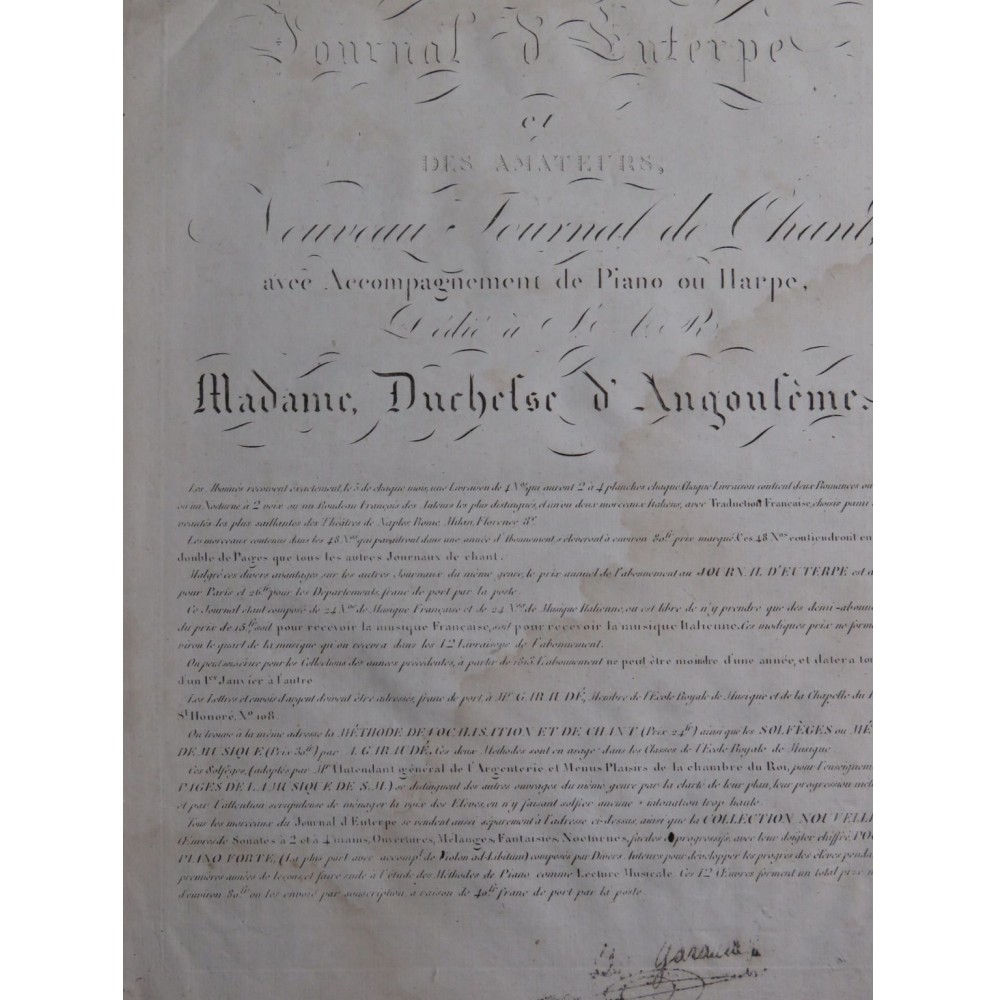 Journal d'Euterpe
et
DES AMATEURS,
Nouveau Journal de Chant,
avec Accompagnement de Piano ou Harpe,
Dédié à S. A. R.
Madame, Duchesse d'Angoulême.
Les Abonnés reçoivent exactement, le 5 de chaque mois, une Livraison de 4 Nos qui auront 2 à 4 planches chaque. Chaque Livraison contient deux Romances ou
et un Nocturne à 2 voix ou un Rondeau Français des Auteurs les plus distingués, et un ou deux morceaux Italiens, avec Traduction Française, choisis parmi
veautés les plus saillantes des Théâtres de Naples, Rome, Milan, Florence &c.
Les morceaux contenus dans les 48 Nos qui paraitront dans une année d'Abonnement, s'éleveront à environ 80ff prix marqué. Ces 48 Nos contiendront en
double de Pages que tous les autres Journaux de chant.
Malgré ces divers avantages sur les autres Journaux du même genre, le prix annuel de l'abonnement au JOURNAL D'EUTERPE est
pour Paris et 26ff pour les Départements, franc de port par la poste.
Ce Journal étant composé de 24 Nos de Musique Française et de 24 Nos de Musique Italienne, on est libre de n'y prendre que des demi-abonne
du prix de 15ff, soit pour recevoir la musique Française, soit pour recevoir la musique Italienne. Ces modiques prix ne forme
viron le quart de la musique qu'on recevra dans les 12 Livraisons de l'abonnement.
On peut souscrire pour les Collections des années précédentes, à partir de 1813. L'abonnement ne peut être moindre d'une année, et datera tou
d'un 1er Janvier à l'autre.
Les Lettres et envois d'argent doivent être adressés, franc de port, à Mr GARAUDÉ, Membre de l'Ecole Royale de Musique et de la Chapelle du
St Honoré, No 108.
On trouve à la même adresse la MÉTHODE DE VOCALISATION ET DE CHANT (Prix 24ff) ainsi que les SOLFÈGES ou MÉ
DE MUSIQUE (Prix 30ff) par A. GARAUDÉ. Ces deux Méthodes sont en usage dans les Classes de l'Ecole Royale de Musique
Ces Solfèges, (adoptés par Mr l'Intendant général de l'Argenterie et Menus Plaisirs de la chambre du Roi, pour l'enseignem
PAGES DE LA MUSIQUE DE S.M.) se distinguent des autres ouvrages du même genre par la clarté de leur plan, leur progression
et par l'attention scrupuleuse de ménager la voix des Elèves, en n'y faisant solfier aucune intonation trop haute.
Tous les morceaux du Journal d'Euterpe se vendent aussi séparément à l'adresse ci-dessus, ainsi que la COLLECTION NOUVELL
Œuvres de Sonates à 2 et à 4 mains, Ouvertures, Mélanges, Fantaisies, Nocturnes, faciles et progressifs, avec leur doigter chiffré, PO
PIANO FORTE, (La plus part avec accompt de Violon ad-Libitum) composés par Divers Auteurs pour développer les progrès des élèves penda
premières années de leçons, et faire suite à l'étude des Méthodes de Piano comme Lecture Musicale. Ces 12 Œuvres forment un total prix
d'environ 80ff on les envoie par souscription, à raison de 40ff franc de port par la poste.
Garaudé